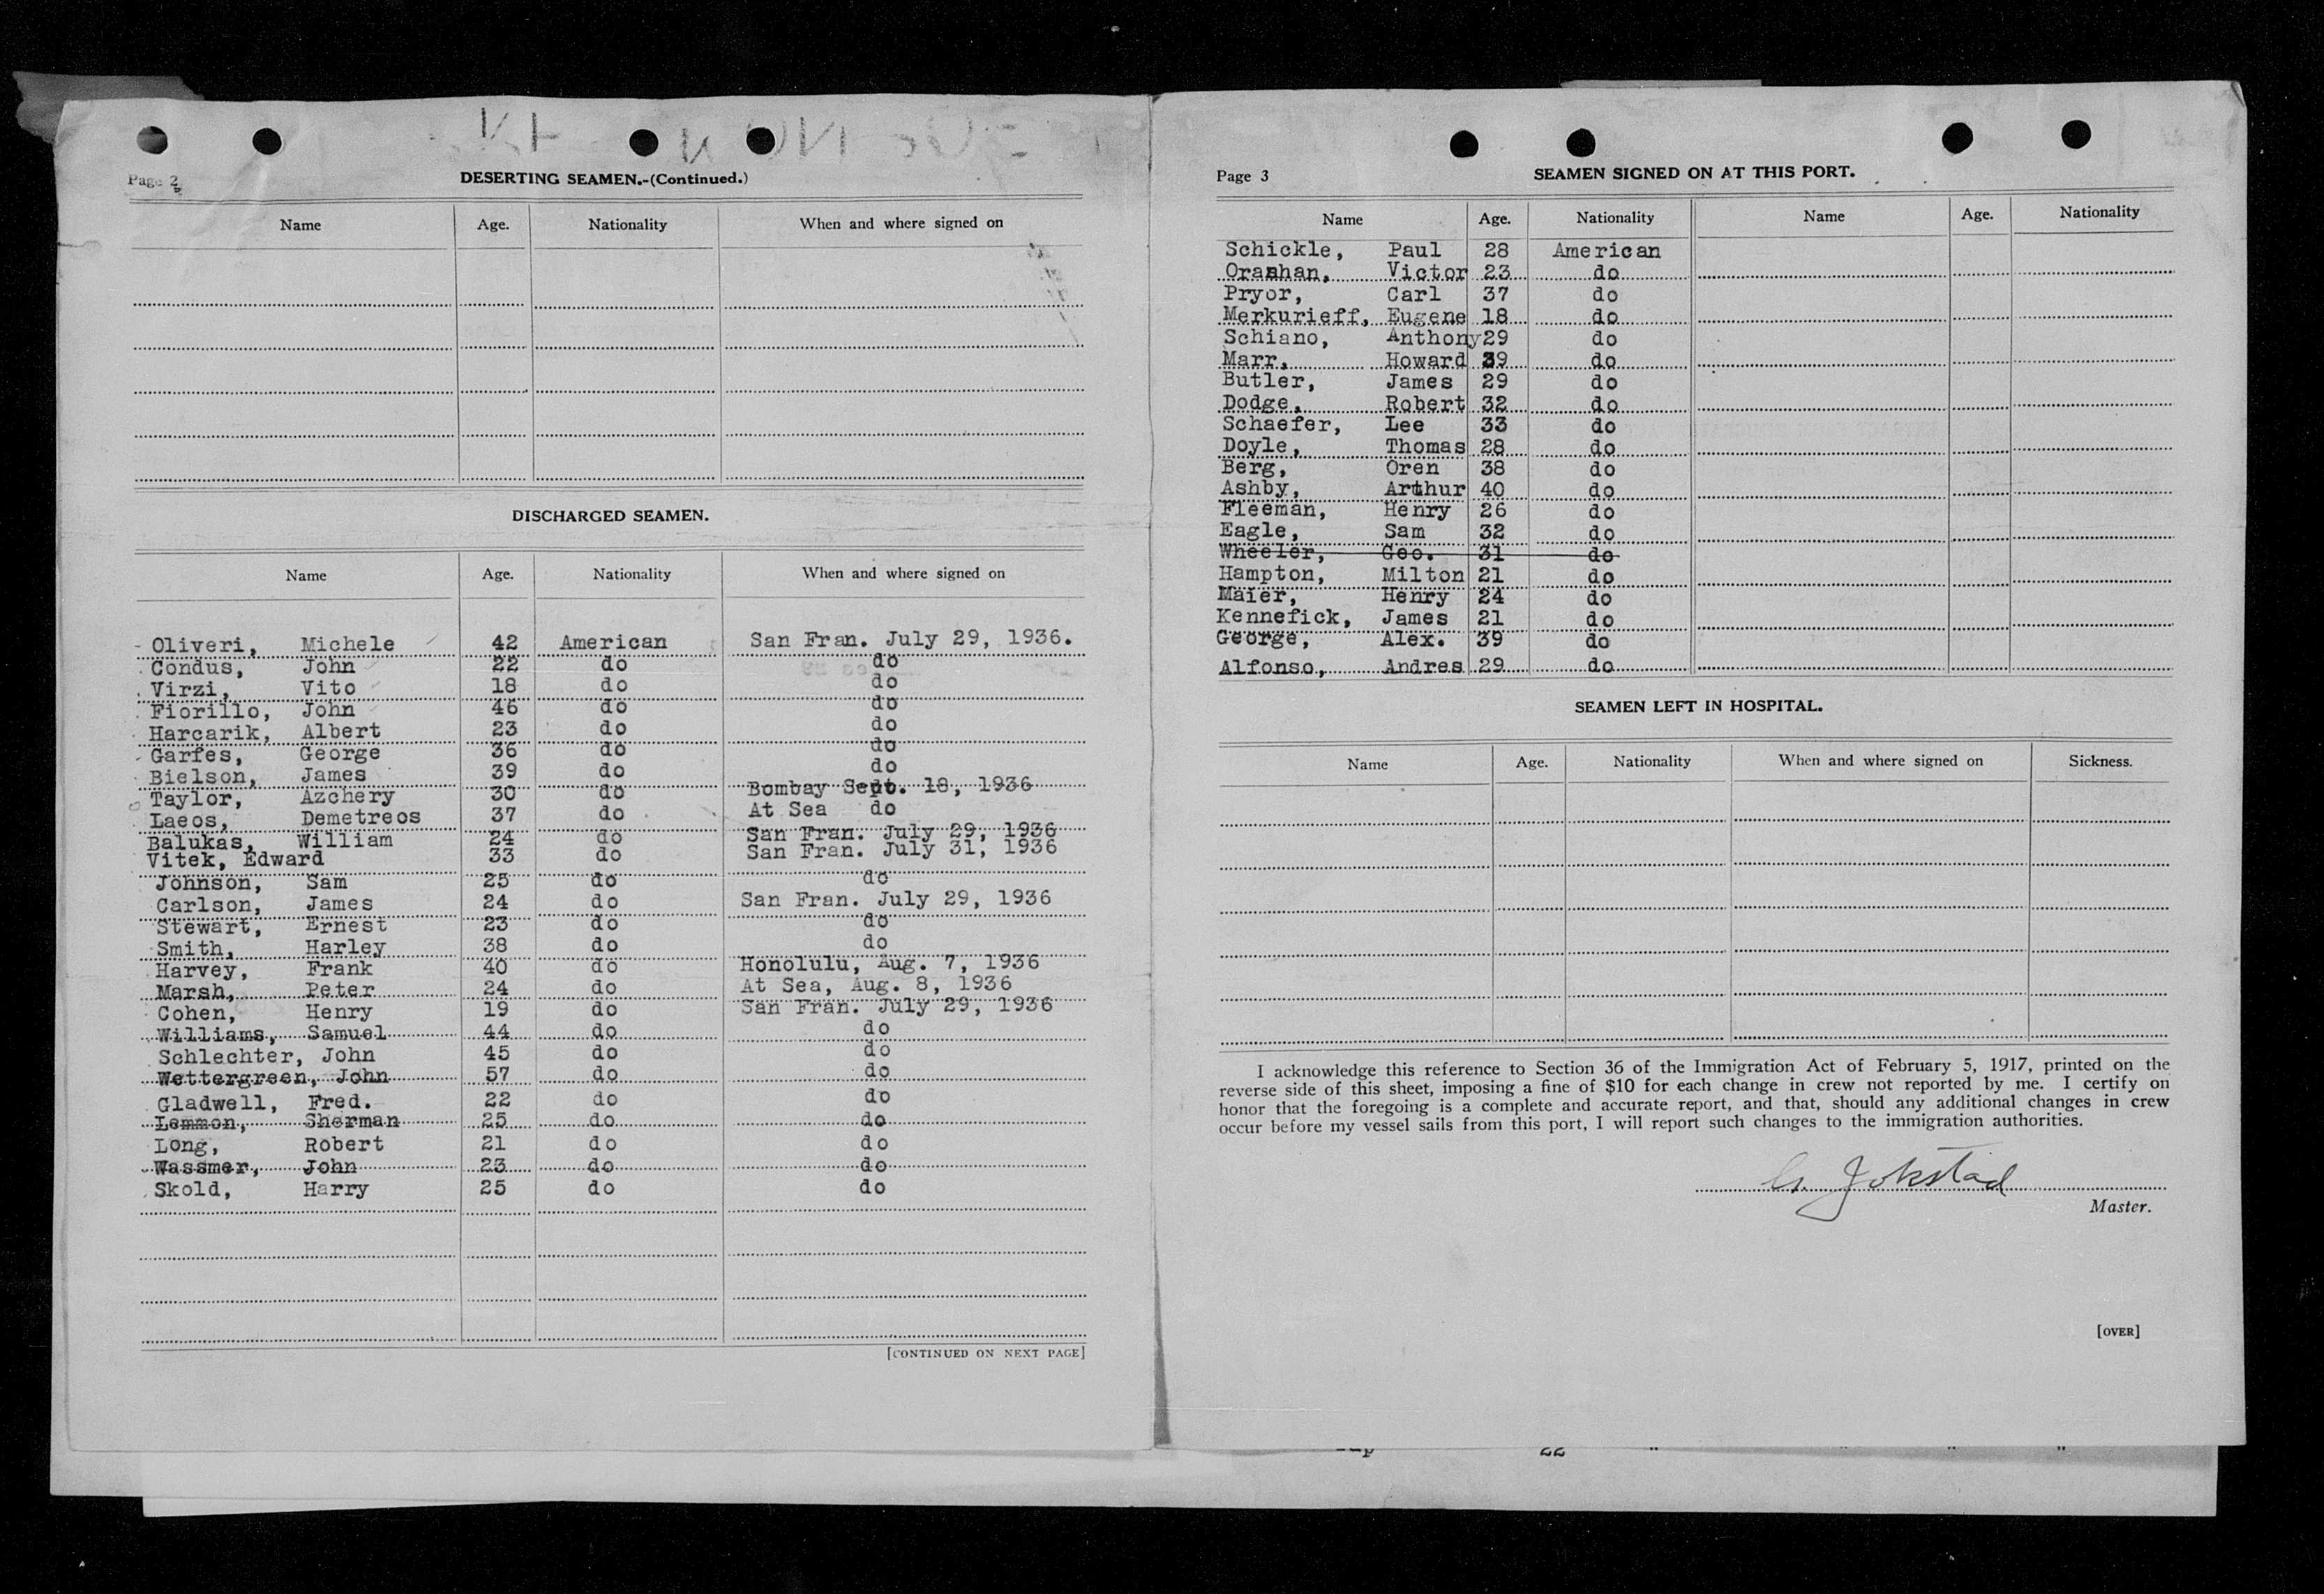 Page 2
DESERTING SEAMEN.-(Continued.)
Name Age. Nationality When and where signed on
DISCHARGED SEAMEN.
Name Age. Nationality When and where signed on
Oliveri, Michele 42 American San Fran. July 29, 1936.
Condus, John 22 do do
Virzi, Vito 18 do do
Fiorillo, John 46 do do
Harcarik, Albert 23 do do
Garfes, George 36 do do
Bielson, James 39 do do
Taylor, Azchery 30 do Bombay Sept. 18, 1936
Laeos, Demetreos 37 do At Sea do
Balukas, William 24 do San Fran. July 29, 1936
Vitek, Edward 33 do San Fran. July 31, 1936
Johnson, Sam 25 do do
Carlson, James 24 do San Fran. July 29, 1936
Stewart, Ernest 23 do do
Smith, Harley 38 do do
Harvey, Frank 40 do Honolulu, Aug. 7, 1936
Marsh, Peter 24 do At Sea, Aug. 8, 1936
Cohen, Henry 19 do San Fran. July 29, 1936
Williams, Samuel 44 do do
Schlechter, John 45 do do
Wettergreen, John 57 do do
Gladwell, Fred. 22 do do
Lemmon, Sherman 25 do do
Long, Robert 21 do do
Wassmer, John 23 do do
Skold, Harry 25 do do
[CONTINUED ON NEXT PAGE]
Page 3
SEAMEN SIGNED ON AT THIS PORT.
Name Age. Nationality Name Age. Nationality
Schickle, Paul 28 American
Victor 23 do
Pryor, Carl 37 do
Merkurieff, Eugene 18 do
Schiano, Anthony 29 do
Marr, Howard 39 do
Butler, James 29 do
Dodge, Robert 32 do
Schaefer, Lee 33 do
Doyle, Thomas 28 do
Berg, Oren 38 do
Ashby, Arthur 40 do
Fleeman, Henry 26 do
Eagle, Sam 32 do
Wheeler, Geo. 31 do
Hampton, Milton 21 do
Maier, Henry 24 do
Kennefick, James 21 do
George, Alex. 39 do
Alfonso, Andres 29 do
SEAMEN LEFT IN HOSPITAL.
Name Age. Nationality When and where signed on Sickness.
I acknowledge this reference to Section 36 of the Immigration Act of February 5, 1917, printed on the
reverse side of this sheet, imposing a fine of $10 for each change in crew not reported by me. I certify on
honor that the foregoing is a complete and accurate report, and that, should any additional changes in crew
occur before my vessel sails from this port, I will report such changes to the immigration authorities.
Jokstad
Master.
[OVER]
22 " " " "